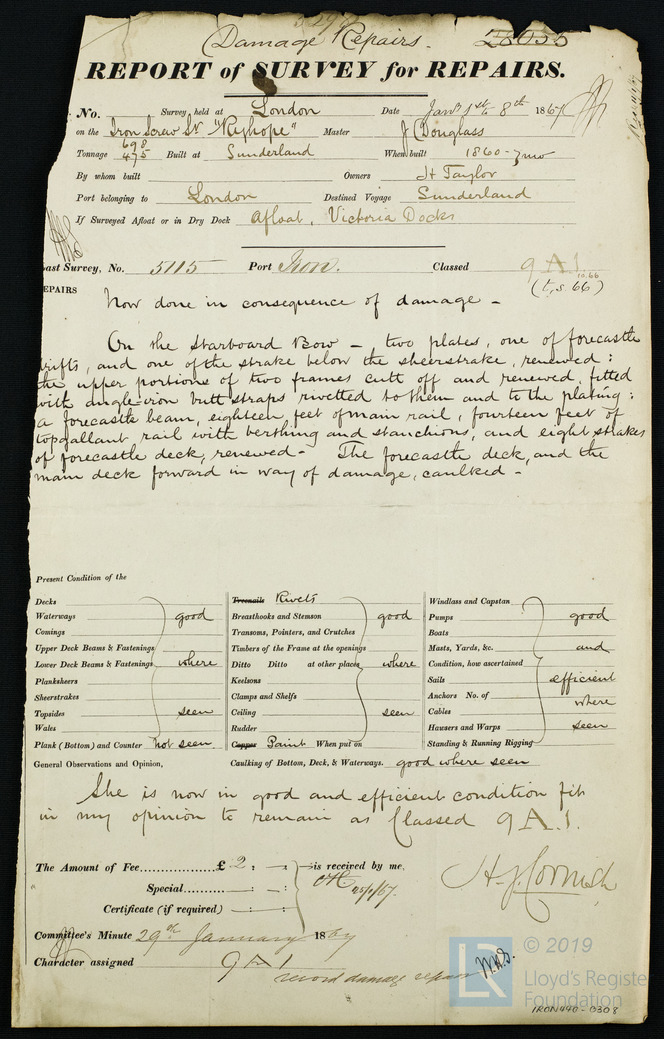 Damage Repairs. 28055
REPORT of SURVEY for REPAIRS.
No. Survey held at London Date Jany 1st to 8th 1867
on the Iron Screw Sr "Ryhope" Master J Douglass
Tonnage 698 475 Built at Sunderland When built 1860-7mo
By whom built Owners H Taylor
Port belonging to London Destined Voyage Sunderland
If Surveyed Afloat or in Dry Dock Afloat, Victoria Docks
ast Survey, No. 5115 Port Iron. Classed 9 A 1. 10.66
(t,s 66)
EPAIRS
Now done in consequence of damage -
On the Starboard Bow - two plates, one of forecastle
drifts, and one of the strake below the sheerstrake, renewed:
the upper portions of two frames cutt off and renewed, fitted
with angle-iron butt straps rivetted to them and to the plating:
a forecastle beam, eighteen feet of main rail, fourteen feet of
topgallant rail with berthing and stanchions, and eight strakes
of forecastle deck, renewed - The forecastle deck, and the
main deck forward in way of damage, caulked -
Present Condition of the
Decks
Waterways good
Comings
Upper Deck Beams & Fastenings
Lower Deck Beams & Fastenings where
Planksheers
Sheerstrakes
Topsides seen
Wales
Plank (Bottom) and Counter not seen
Treenails Rivets
Breasthooks and Stemson good
Transoms, Pointers, and Crutches
Timbers of the Frame at the openings
Ditto Ditto at other places where
Keelsons
Clamps and Shelfs
Ceiling seen
Rudder
Copper Paint When put on
Windlass and Capstan
Pumps good
Boats
Masts, Yards, &c. and
Condition, how ascertained
Sails efficient
Anchors No. of
Cables where
Hawsers and Warps seen
Standing & Running Rigging
General Observations and Opinion, Caulking of Bottom, Deck, & Waterways. good where seen
She is now in good and efficient condition fit
in my opinion to remain as Classed 9 A.1.
The Amount of Fee £ 2 : - : - is received by me,
Special : :
25/1/67.
Certificate (if required) : :
H. J. Cornish
Committee's Minute 29th January 1867
Character assigned 9 A 1
record damage repairs W.H.S.
© 2019
LR Lloyd's Registe
Foundation
IRON440-0308